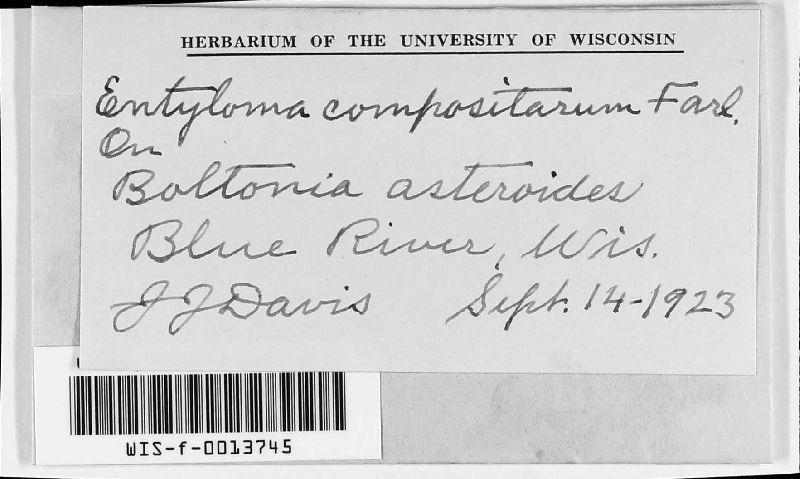 HERBARIUM OF THE UNIVERSITY OF WISCONSIN
Entyloma compositarum Farl.
On
Boltonia asteroides
Blue River, Wis.
J J Davis Sept. 14-1923
WIS-f-0013745